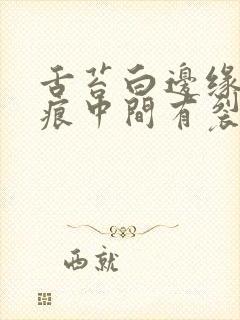 舌苔白邊緣
痕中間有裂
西就